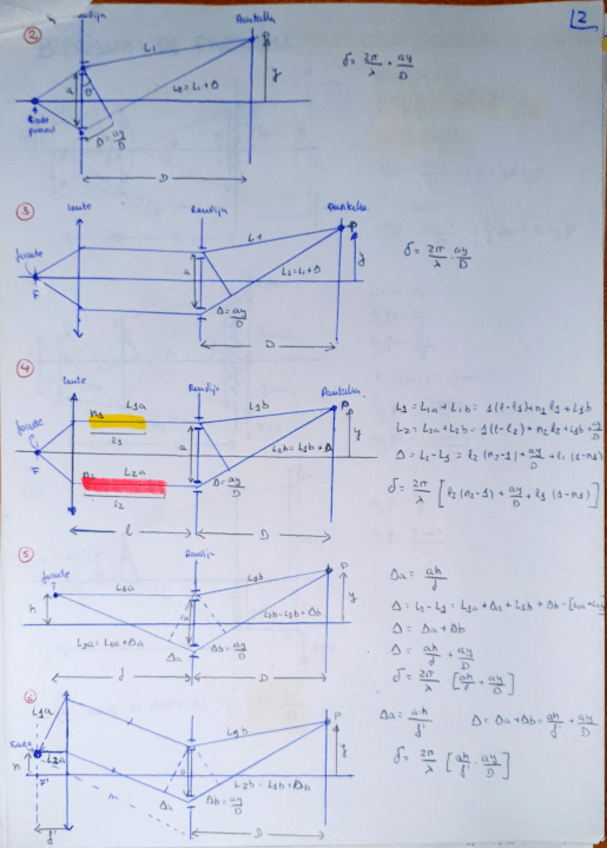 2
②
Pantalla
L1
y
a
θ
L2 = L1 + Δ
Δ = ay/D
D
δ = 2π/λ · ay/D
③
lente
Rendija
Pantalla
fuente
F
L1
P
y
a
L2 = L1 + Δ
Δ = ay/D
D
δ = 2π/λ · ay/D
④
lente
Rendija
Pantalla
fuente
F
n1
L1a
l1
L1b
P
y
a
L2a
l2
L2b = L1b + Δ
Δ = ay/D
l
D
L1 = L1a + L1b = 1(l-l1) + n1 l1 + L1b
L2 = L2a + L2b = 1(l-l2) + n2 l2 + L1b + ay/D
Δ = L2 - L1 = l2 (n2-1) + ay/D + l1 (1-n1)
δ = 2π/λ [l2 (n2-1) + ay/D + l1 (1-n1)]
⑤
Rendija
fuente
h
L1a
L1b
P
y
L2b = L1b + Δb
L2a = L1a + Δa
Δa
Δb = ay/D
D
Δa = ah/f
Δ = L2 - L1 = L1a + Δa + L1b + Δb - [L1a + L1b
Δ = Δa + Δb
Δ = ah/f + ay/D
δ = 2π/λ [ah/f + ay/D]
L1a
L2a
h
F'
f'
L1b
P
y
L2b = L1b + Δb
Δa
Δb = ay/D
D
Δa = ah/f'
Δ = Δa + Δb = ah/f' + ay/D
δ = 2π/λ [ah/f' · ay/D]